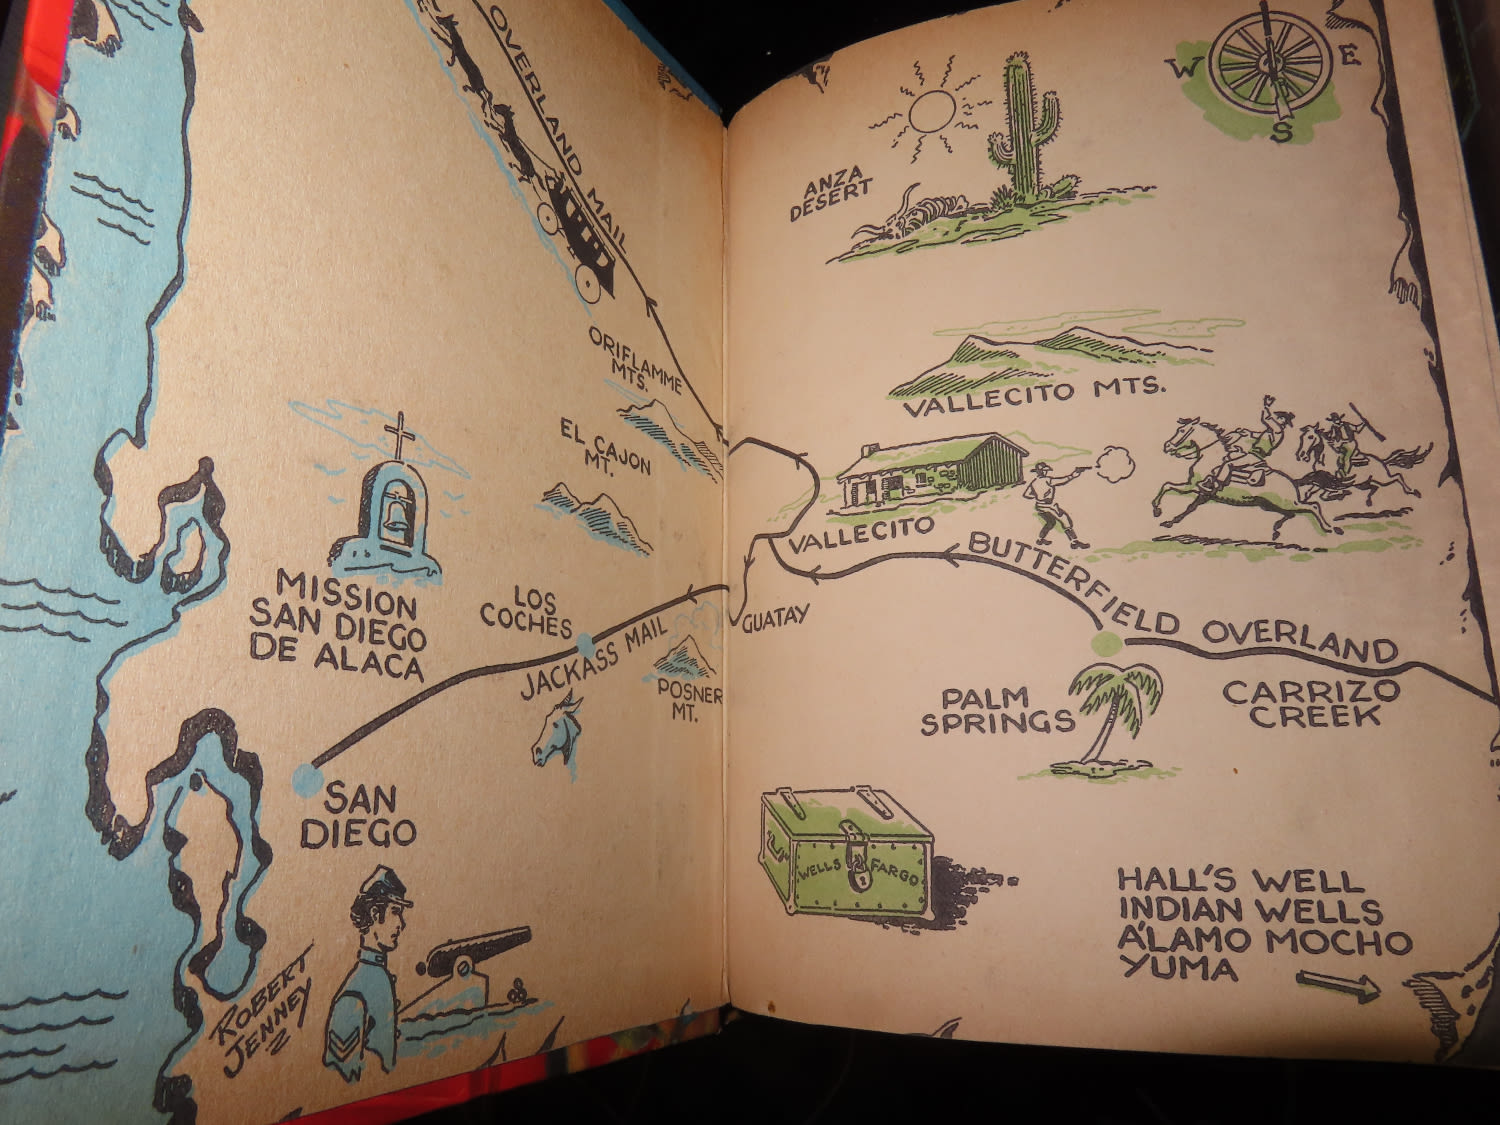 OVERLAND MAIL
ORIFLAMME
MTS.
EL CAJON
MT.
MISSION
SAN DIEGO
DE ALACA
LOS
COCHES
JACKASS MAIL
POSNER
MT.
SAN
DIEGO
ROBERT
JENNEY
W
E
S
ANZA
DESERT
VALLECITO MTS.
VALLECITO
BUTTERFIELD OVERLAND
GUATAY
PALM
SPRINGS
CARRIZO
CREEK
WELLS FARGO
HALL'S WELL
INDIAN WELLS
A'LAMO MOCHO
YUMA